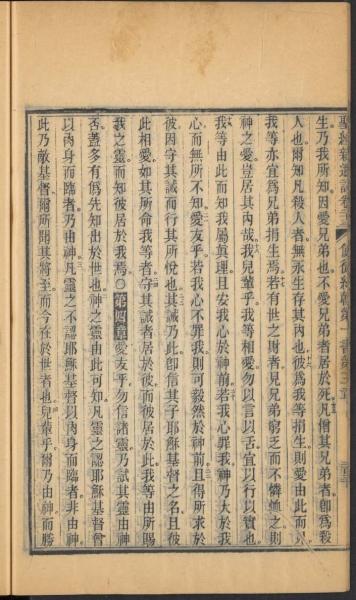 聖經新遺詔卷二十 使徒約翰第一書
生乃我所知因愛兄弟也不愛兄弟者居於死凡憎其兄弟卽爲殺
人也爾知凡殺人者無永生存其內也彼爲我等捐生則愛由此而
我等亦宜爲兄弟捐生焉若有世之財者見兄弟窮乏而不憐恤之則
神之愛豈居其內哉我兒輩乎我等相愛勿以言以舌宜以行以實也
我等由此而知我屬眞理且安我心於神前若我心罪我神乃大於我
心而無所不知愛友乎若我心不罪我則可毅然於神前且得所求於
彼因守其誡而行其所悅也其誡乃此卽信其子耶穌基督之名且彼
此相愛如其所命我等者守其誡者居於彼而彼居於此我等由所賜
我之靈而知彼居於我焉○第四章愛友乎勿信諸靈乃試其靈由神
否蓋多有僞先知出於世也神之靈由此可知凡靈之認耶穌基督曾
以肉身而臨者乃由神凡靈之不認耶穌基督以肉身而臨者非由神
此乃敵基督爾所聞其將至而今在於世者也兒輩乎爾乃由神而勝